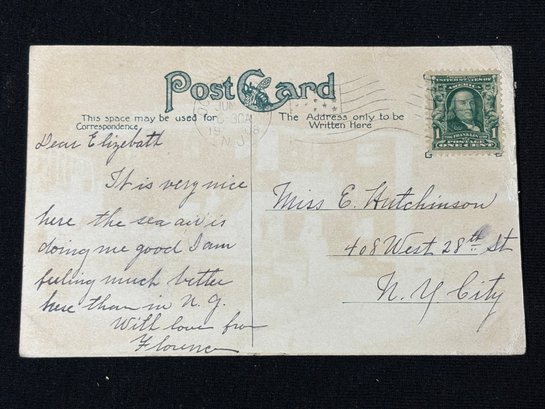 Post Card
This space may be used for
Correspondence
The Address only to be
Written Here
JUN
19 08
N.J.
UNITED STATES OF
AMERICA
1
1
FRANKLIN
POSTAGE
ONE CENT
Dear Elizebath
It is very nice
here the sea air is
doing me good I am
feeling much better
here than in N.Y.
With love from
Florence
Miss E. Hutchinson
408 West 28th St
N. Y City